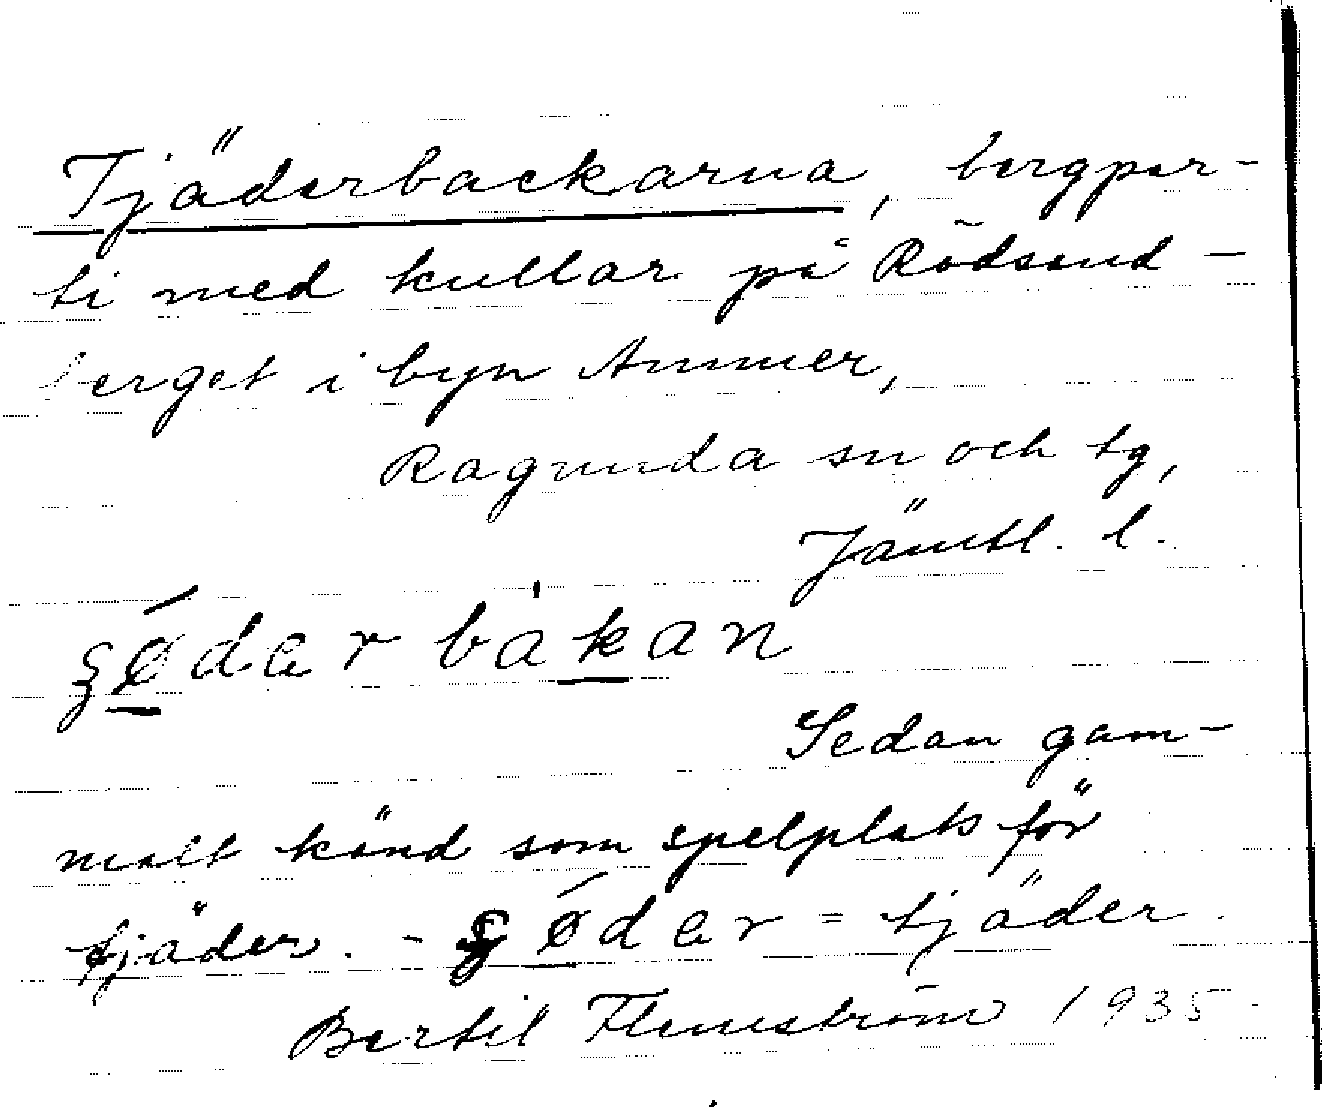 Tjäderbackarna, bergpar-
ti med kullar på Rödsand-
berget i byn Ammer,
Ragunda sn och tg,
Jämtl. l.
ʒǿdɐr bakan
Sedan gam-
malt känd som spelplats för
tjäder. - ʒǿdɐr = tjäder.
Bertil Flemström 1935